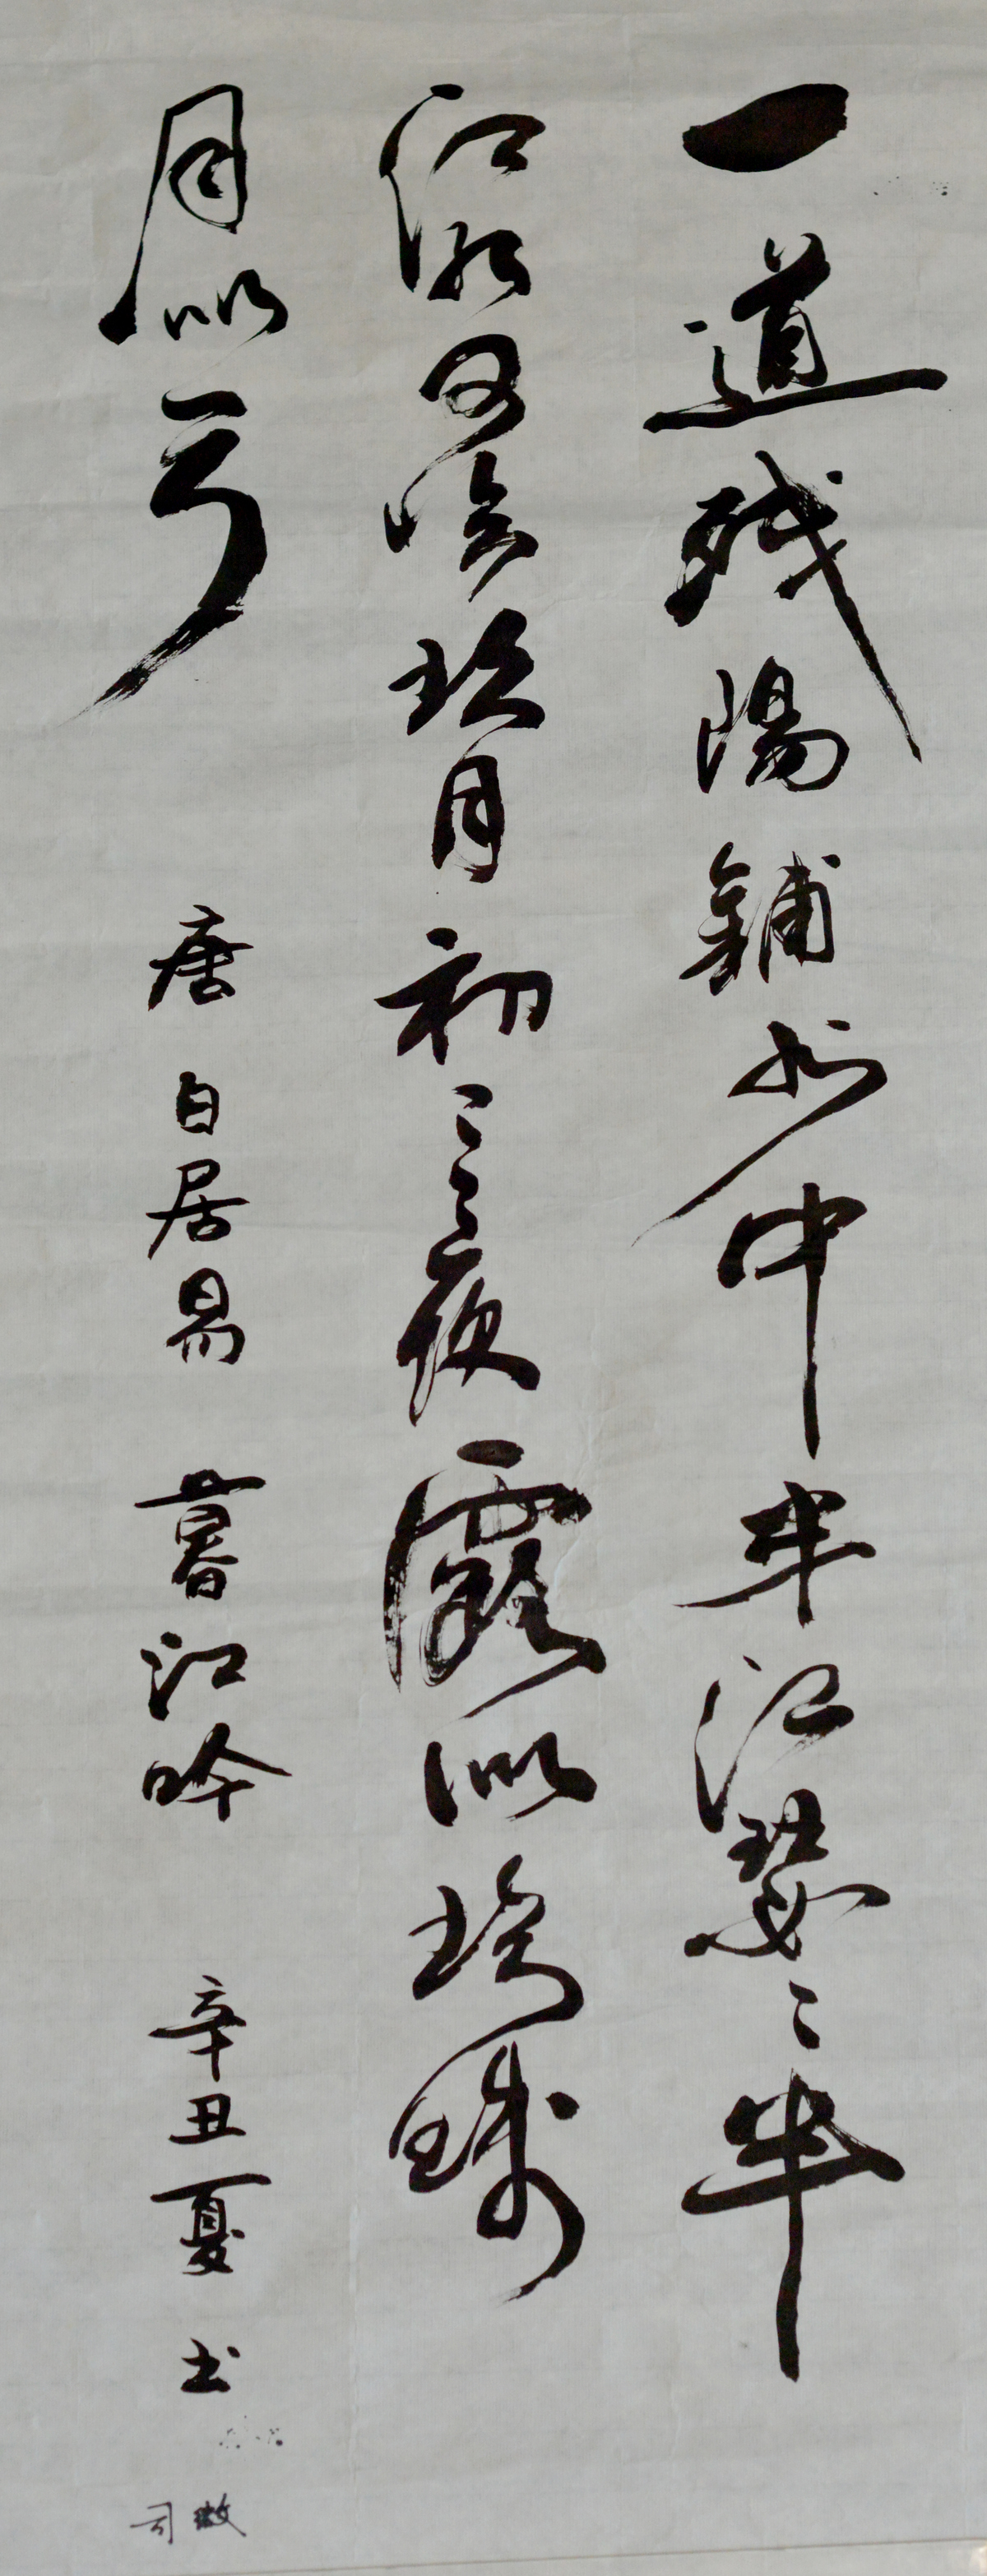 一道残陽鋪水中半江瑟〻半
江紅可怜玖月初三夜露似珍珠
月似弓 唐 白居易 暮江吟 辛丑夏 书